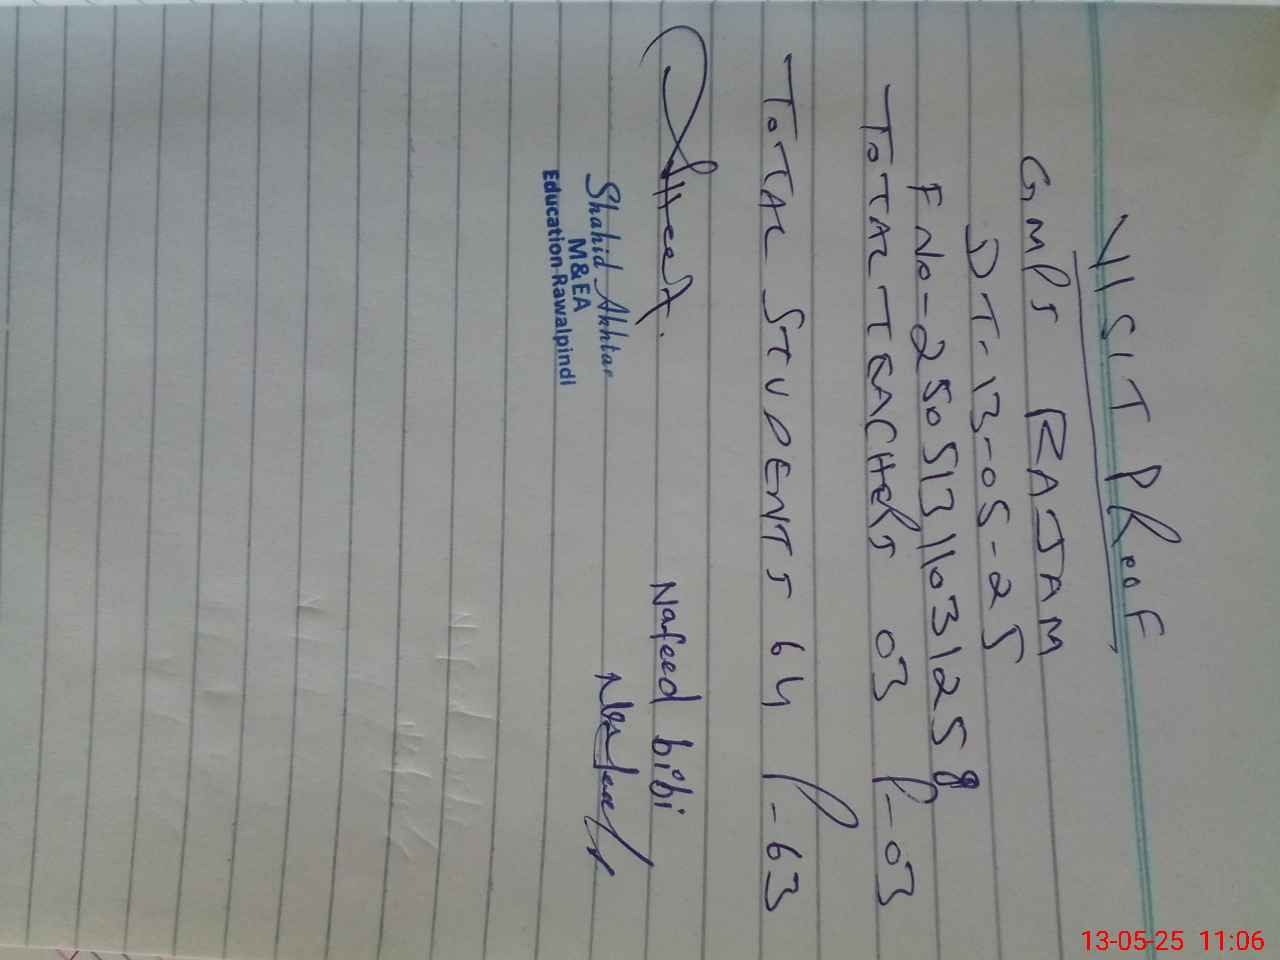 VISIT PRooF
GMPS RAJAM
DT- 13-05-25
F No- 25051311031258
TOTAL TEACHERS 03 P-03
TOTAL STUDENTS 64 P-63
Nafeed bibi
Shahid Akhtar
M&EA
Education-Rawalpindi
13-05-25 11:06